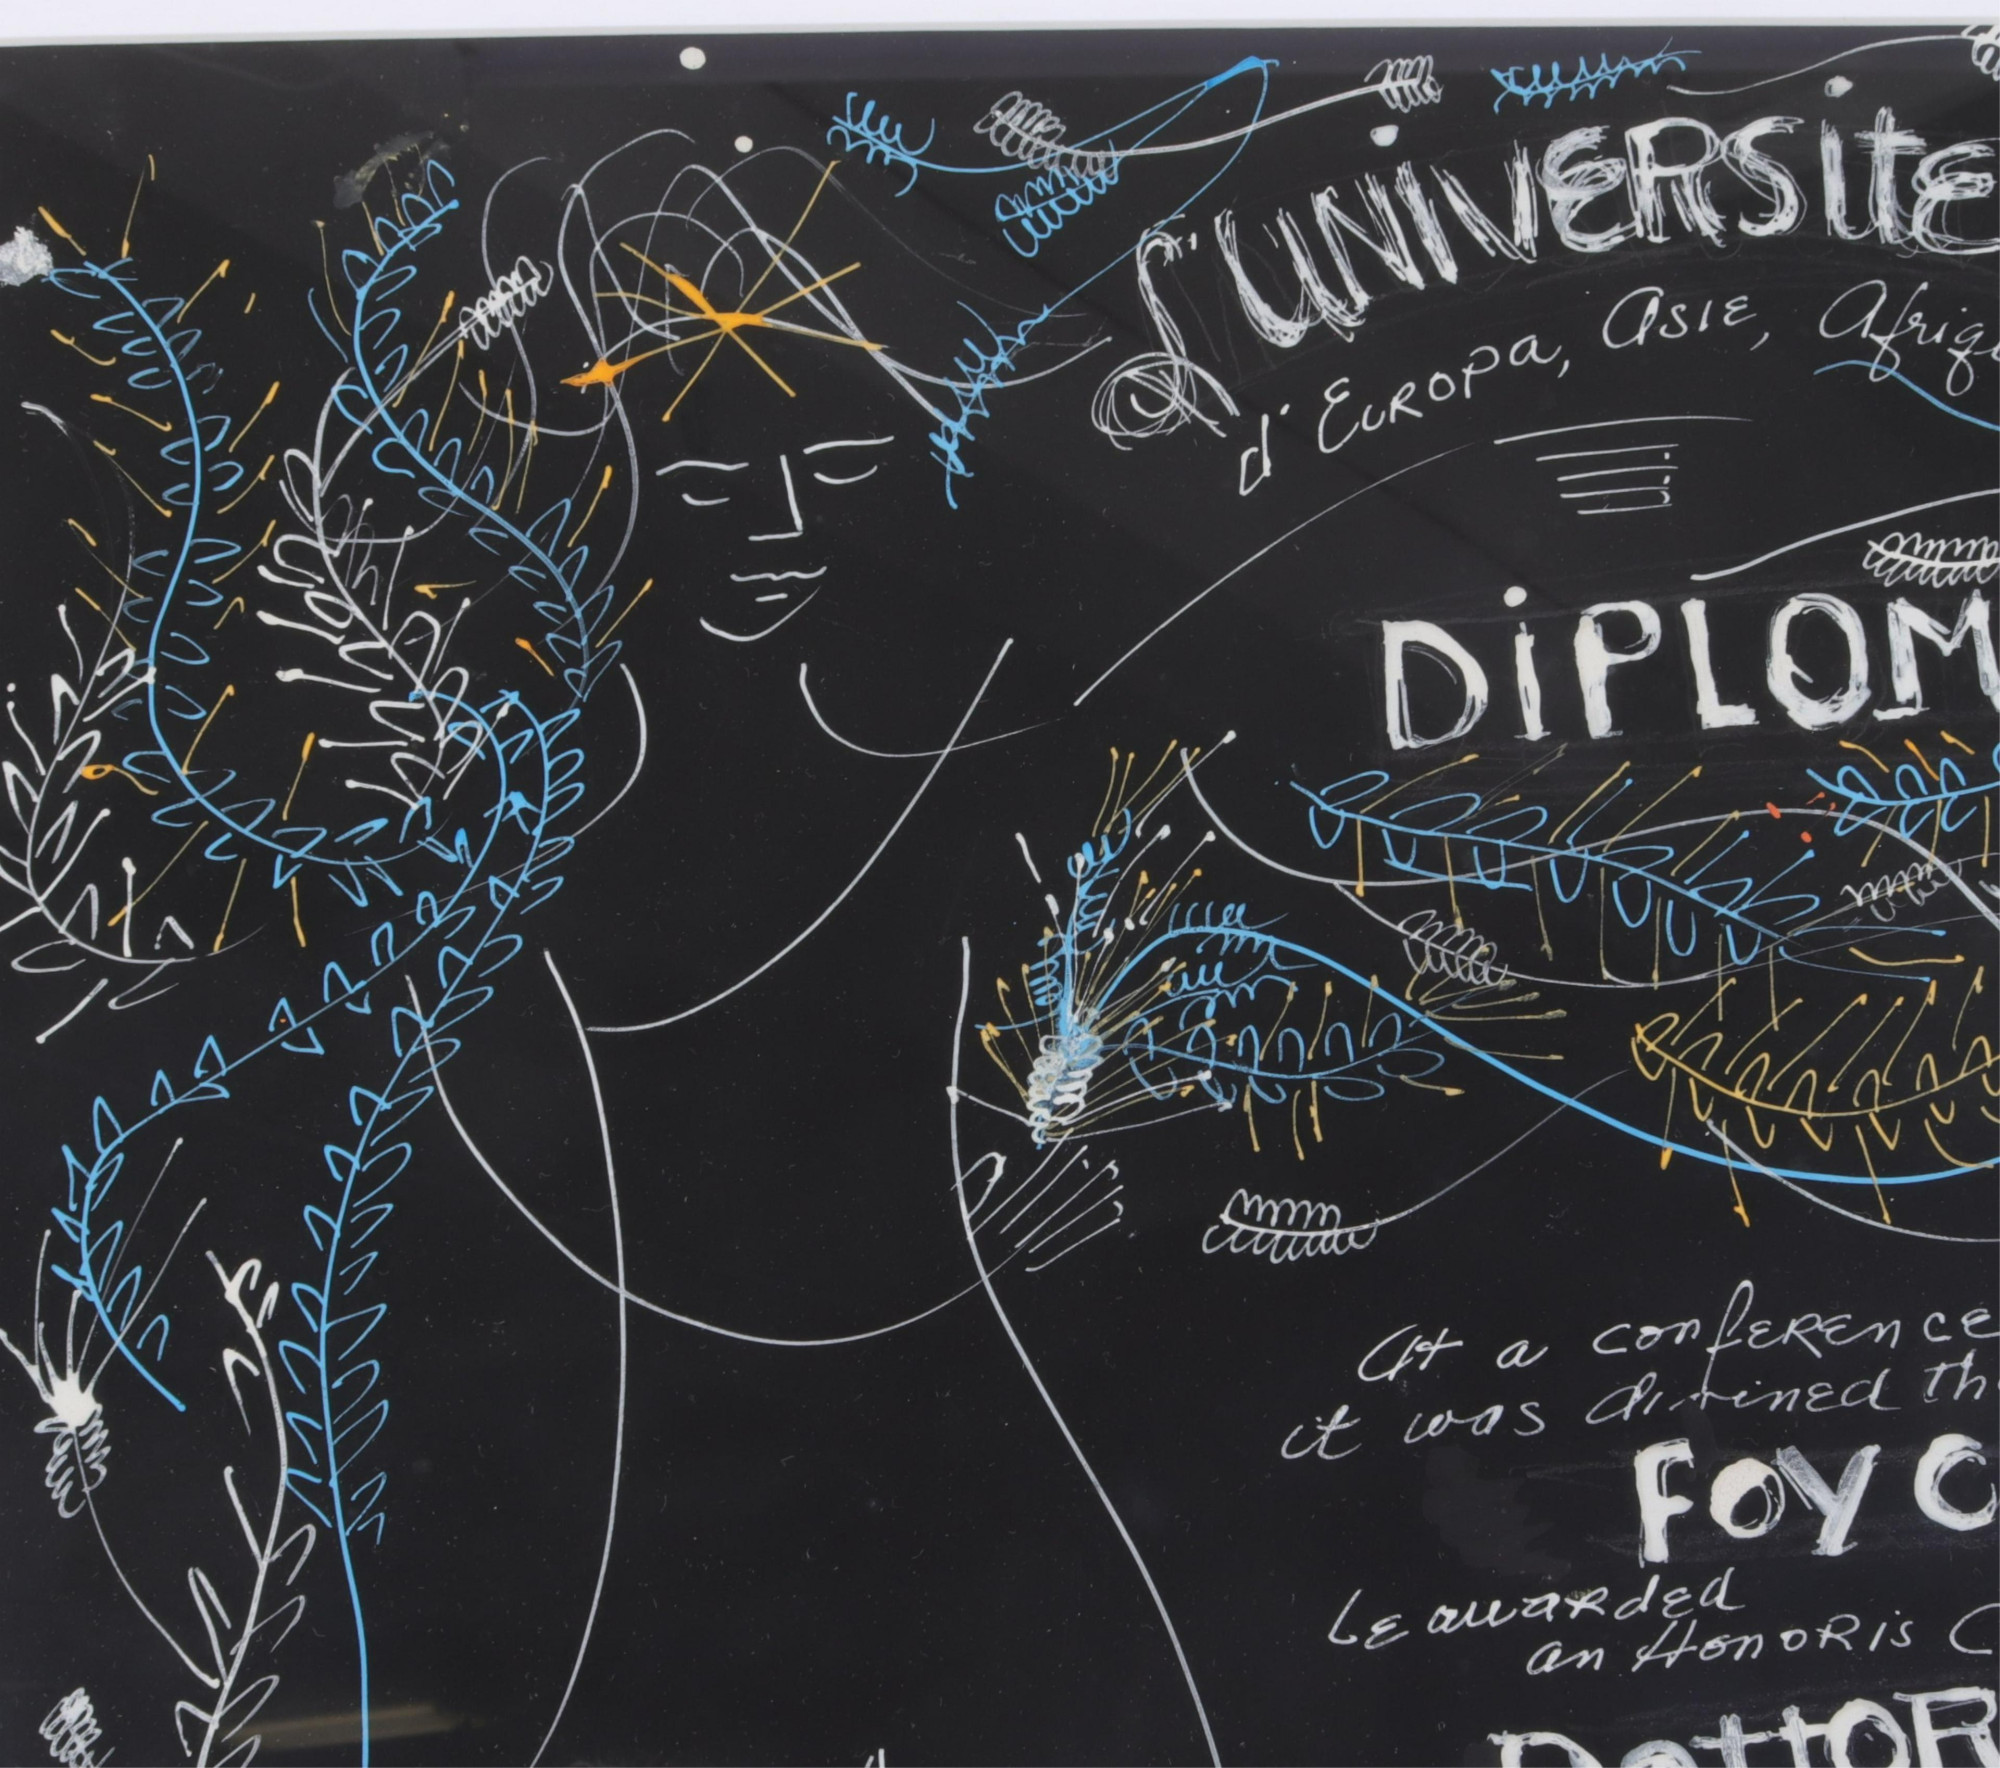 L'UNIVERSITE
d'EUROPA, ASIE, Afriq
DiPLOM
At a conference
it was th
FOY C
be awarded
an HONORIS C
DOTTOR